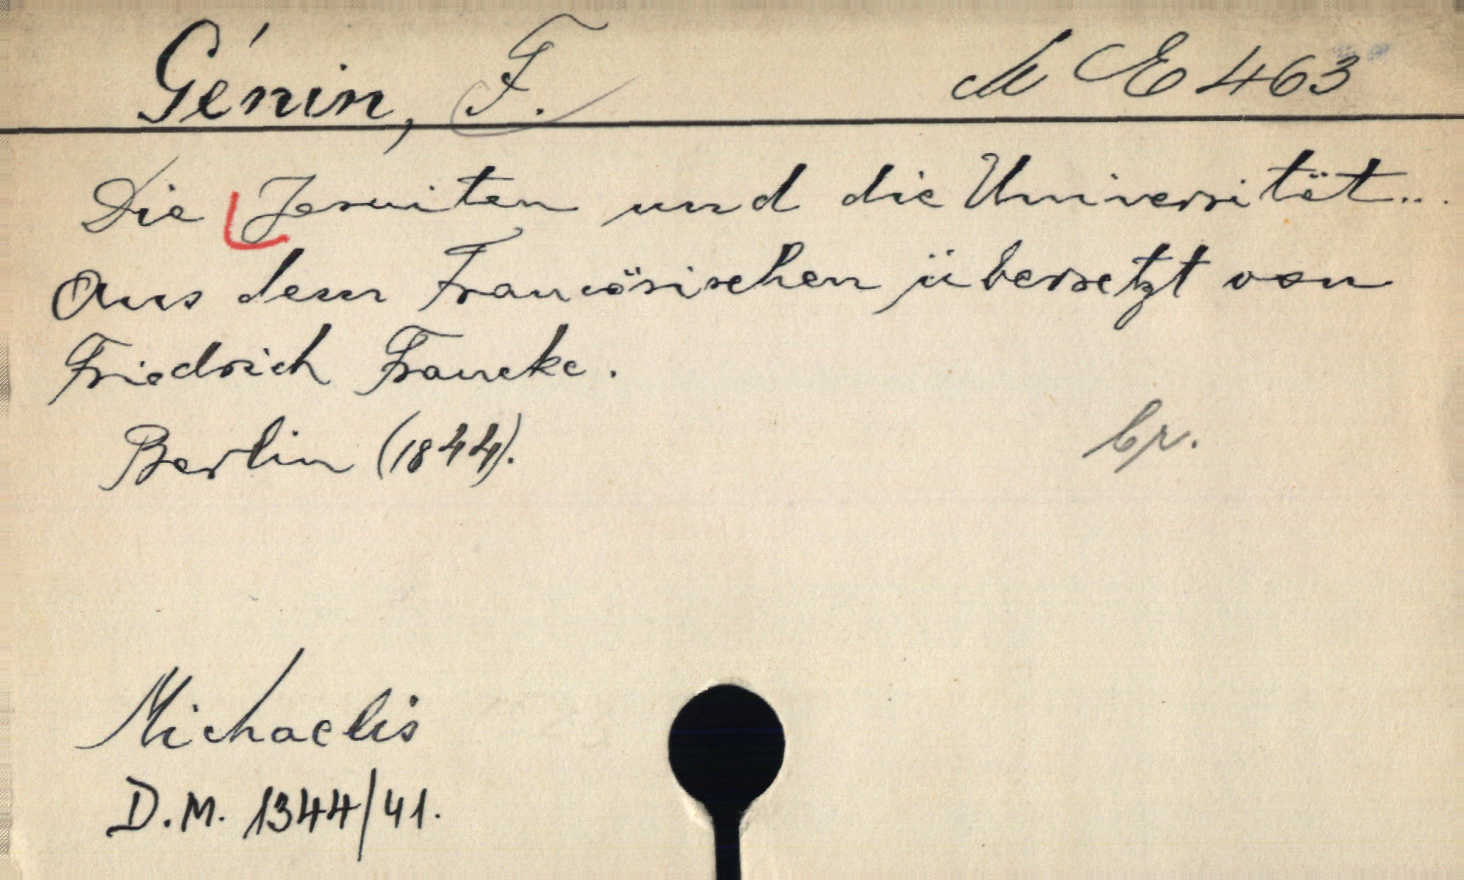 Génin, F. M E 463
Die Jesuiten und die Universität...
Aus dem Francösischen übersetzt von
Friedrich Francke.
Berlin (1844).
br.
Michaelis
D.M. 1344/41.